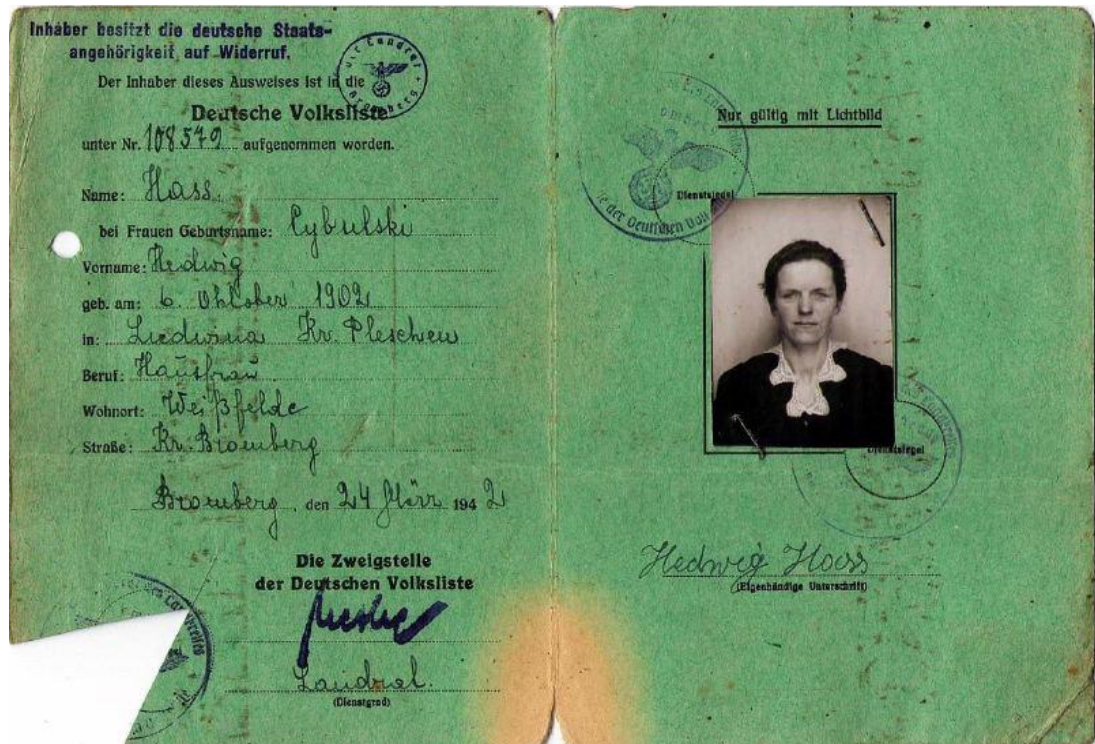 Inhaber besitzt die deutsche Staats-
angehörigkeit auf Widerruf.
Der Inhaber dieses Ausweises ist in die
Deutsche Volksliste
unter Nr. 108579 aufgenommen worden.
Name: Hass
bei Frauen Geburtsname: Cybulski
Vorname: Hedwig
geb. am: 6. Oktober 1902
in: Ludwina Kr. Pleschen
Beruf: Hausfrau
Wohnort: Weißfelde
Straße: Kr. Bromberg
Bromberg, den 24 März 1942
Die Zweigstelle
der Deutschen Volksliste
Landrat.
(Dienstgrad)
Der Landrat
Bromberg
Nur gültig mit Lichtbild
Dienstsiegel
der Deutschen
Dienstsiegel
Hedwig Hass
(Eigenhändige Unterschrift)